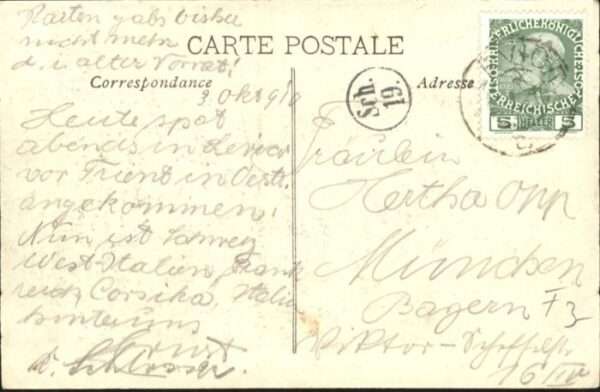 Karten gabs bisher
nicht mehr
d. i. alter Vorrat!
CARTE POSTALE
Correspondance
3 Okt 910
Heute spät
abends in
vor Trient in Östr.
angekommen.
Nun ist Schweiz
West-Italien, Frank
reich Corsika, Italien
hinter uns
Ernst
Adresse
Sch.
19.
KAISERLICHE KÖNIGLICHE
ÖSTERREICHISCHE
5 HELLER 5
Fräulein
Hertha Opp
München
Bayern
Viktor-Scheffelstr.
16 IV